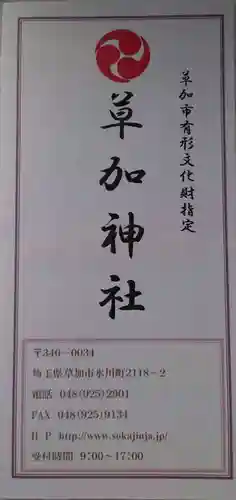 草加市有形文化財指定
草加神社
〒340-0034
埼玉県草加市氷川町2118-2
電話 048(925)2901
FAX 048(925)9134
HP http://www.sokajinja.jp/
受付時間 9:00~17:00